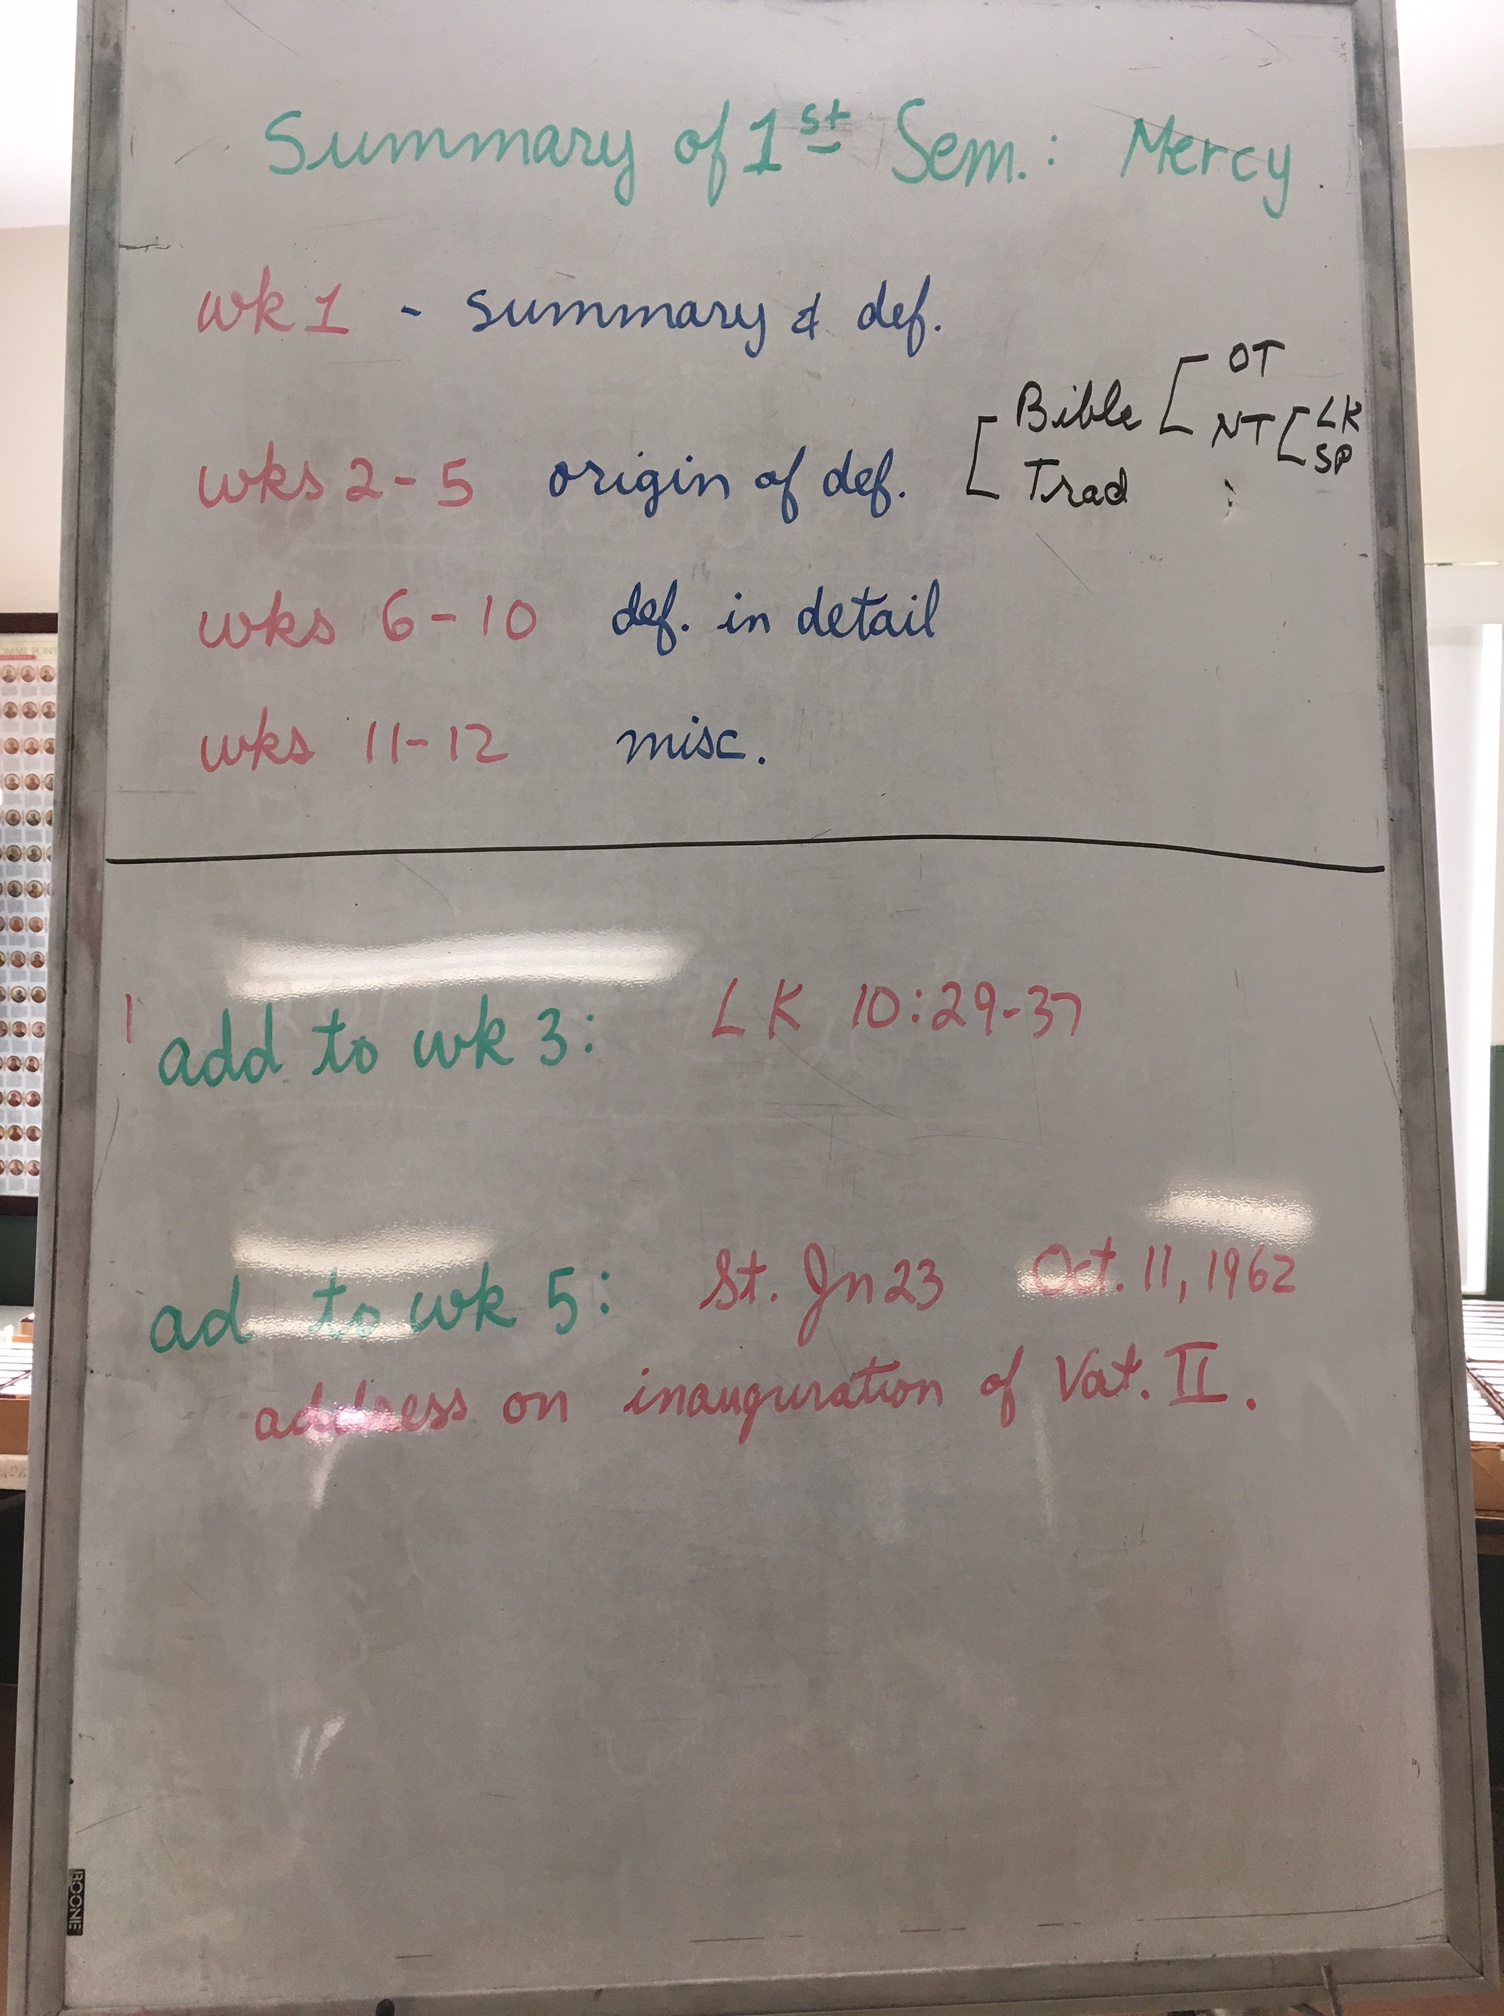 Summary of 1st Sem.: Mercy
wk 1 - summary & def.
wks 2-5 origin of def. [ Bible [ OT
NT [ LK
SP
Trad
wks 6-10 def. in detail
wks 11-12 misc.
add to wk 3: LK 10:29-37
ad to wk 5: St. Jn 23 Oct. 11, 1962
address on inauguration of Vat. II.
BOONE